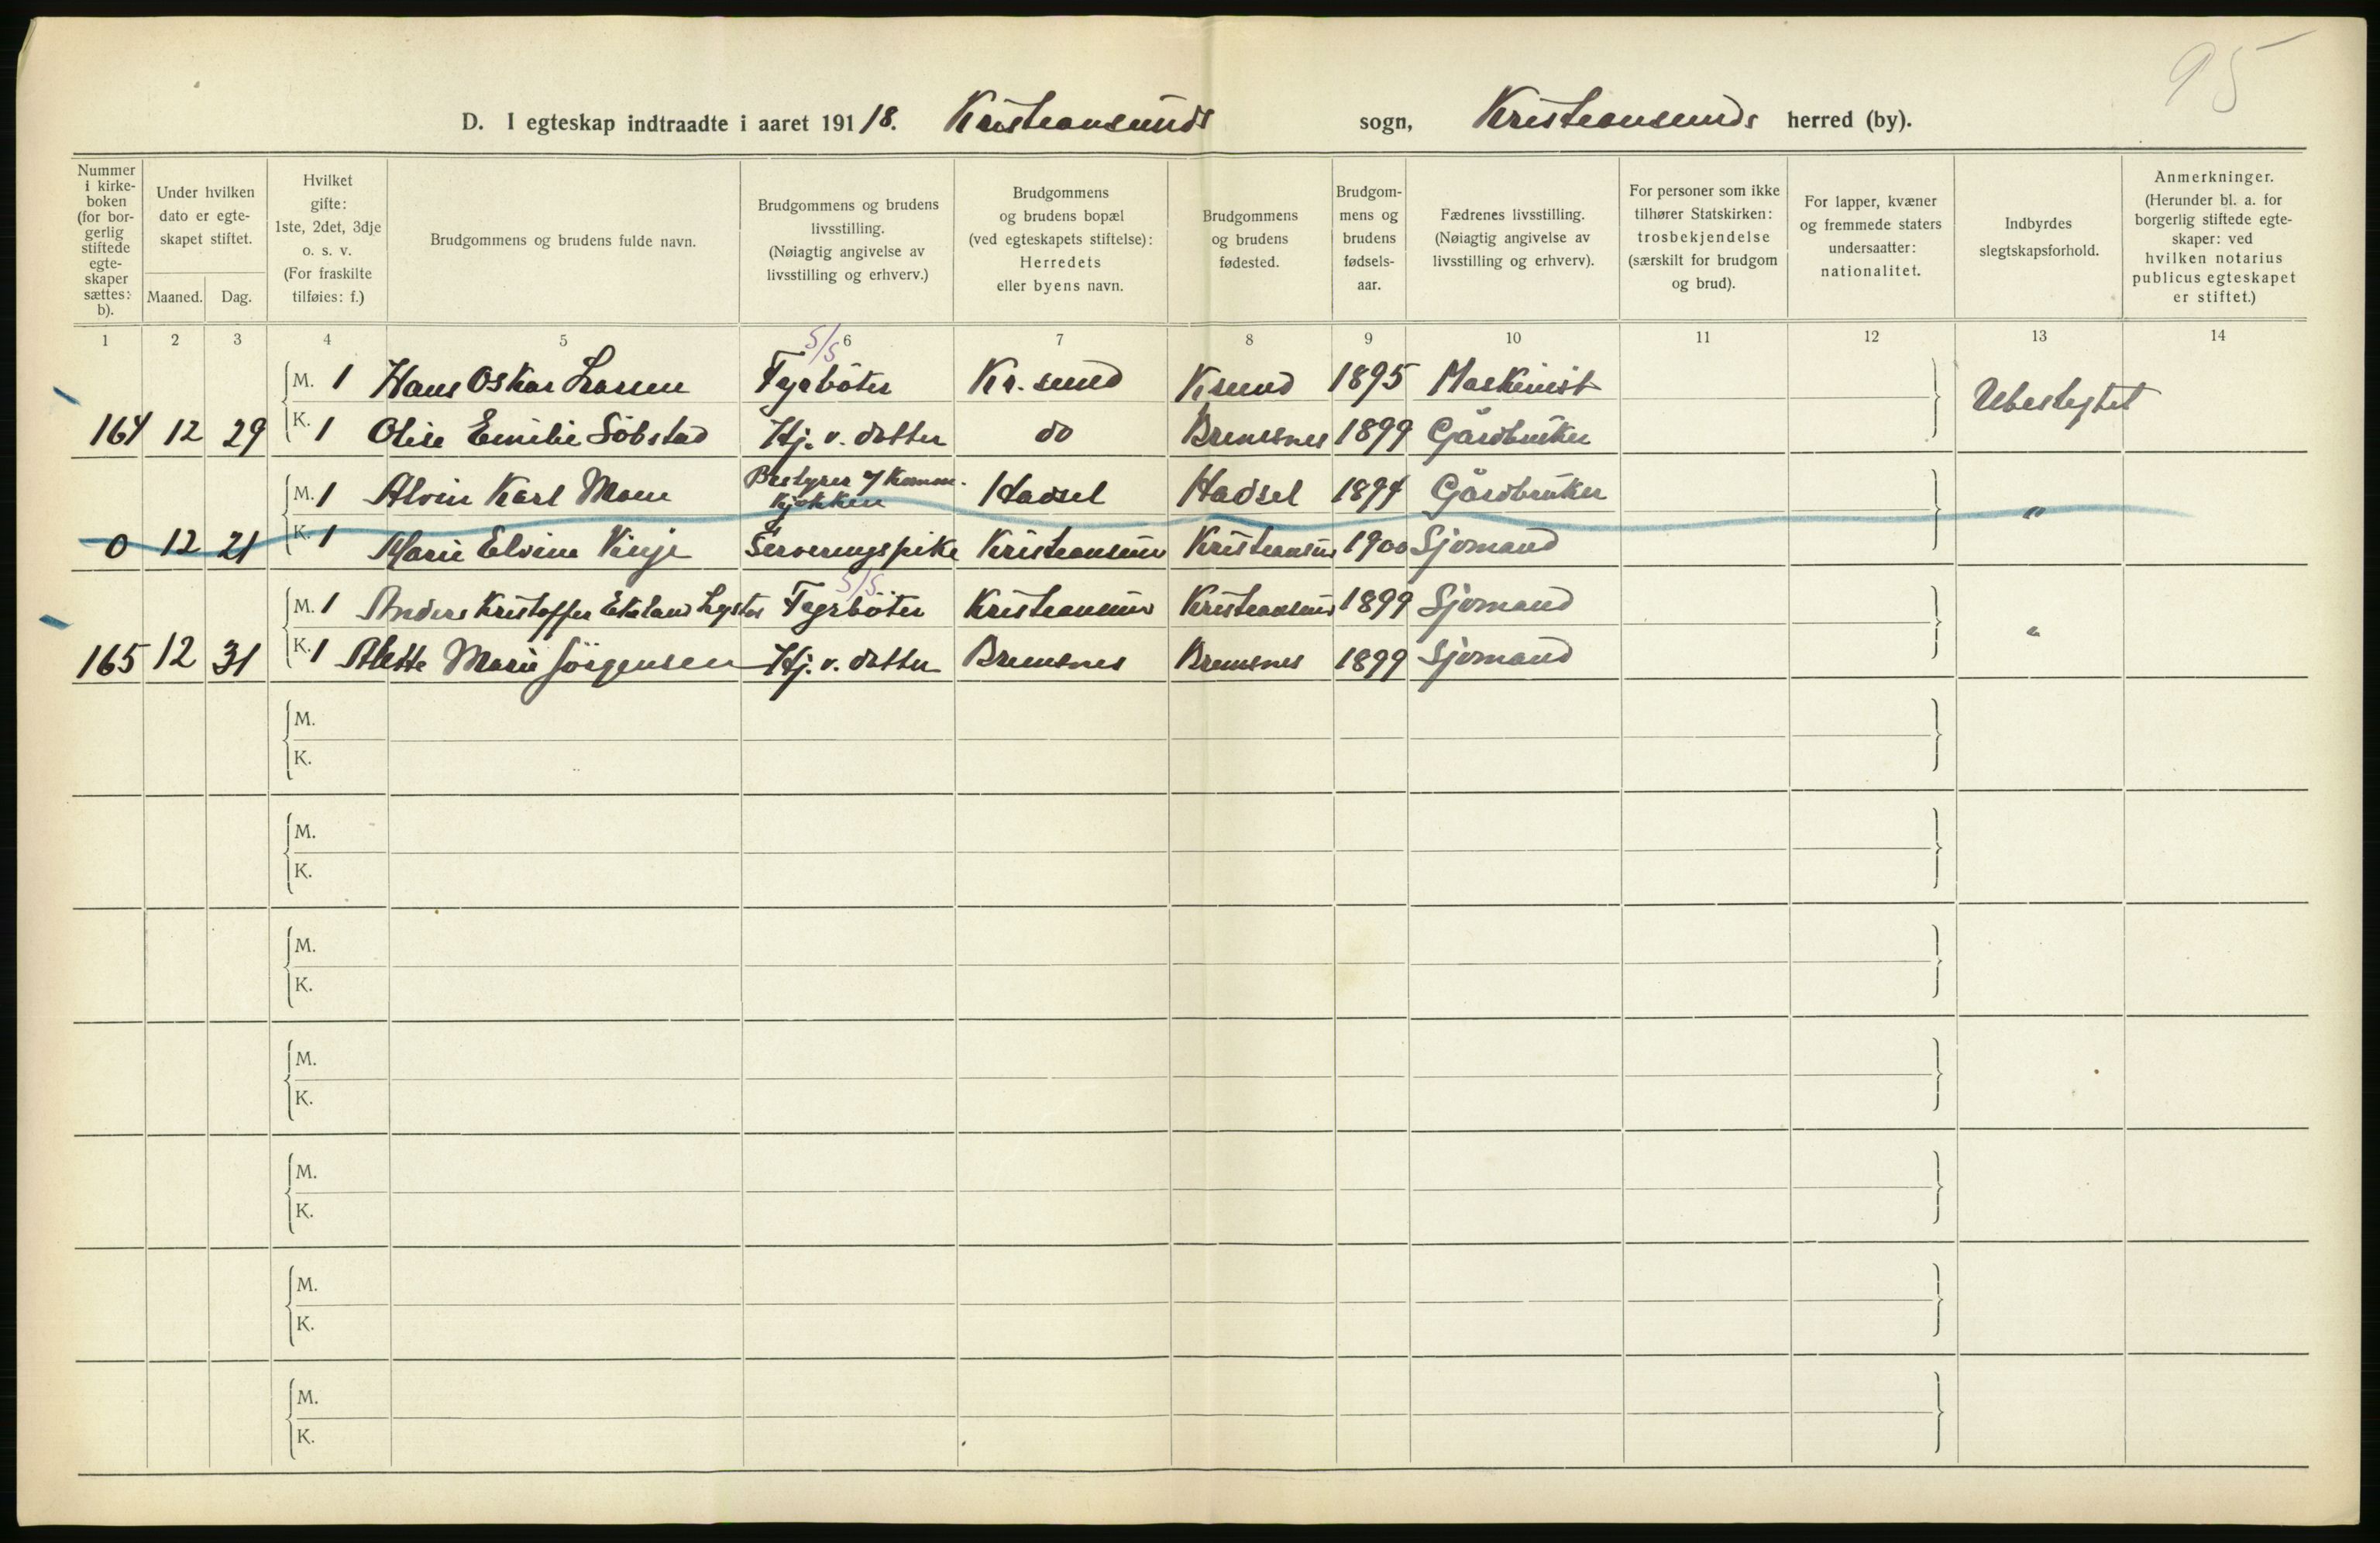 95
D. I egteskap indtraadte i aaret 191 18. Kristiansunds sogn, Kristiansunds herred (by).
Nummer i kirke-boken (for bor-gerlig stiftede egte-skaper sættes: b).
Under hvilken dato er egte-skapet stiftet.
Maaned. Dag.
Hvilket gifte: 1ste, 2det, 3dje o. s. v. (For fraskilte tilføies: f.)
Brudgommens og brudens fulde navn.
Brudgommens og brudens livsstilling. (Nøiagtig angivelse av livsstilling og erhverv.)
Brudgommens og brudens bopæl (ved egteskapets stiftelse): Herredets eller byens navn.
Brudgommens og brudens fødested.
Brudgom-mens og brudens fødsels-aar.
Fædrenes livsstilling. (Nøiagtig angivelse av livsstilling og erhverv).
For personer som ikke tilhører Statskirken: trosbekjendelse (særskilt for brudgom og brud).
For lapper, kvæner og fremmede staters undersaatter: nationalitet.
Indbyrdes slegtskapsforhold.
Anmerkninger. (Herunder bl. a. for borgerlig stiftede egte-skaper: ved hvilken notarius publicus egteskapet er stiftet.)
1 2 3 4 5 6 7 8 9 10 11 12 13 14
S/S
M. 1 Hans Oskar Larsen Fyrbøter Kr. sund Ksund 1895 Maskinist Ubeslegtet
164 12 29 K. 1 Olise Emilie Söbstad Hj. v. datter do Bremsnes 1899 Gårdbruker
M. 1 Alvin Karl Moen Bestyrer af Komm. Kjøkken Hadsel Hadsel 1894 Gårdbruker "
0 12 21 K. 1 Marie Elvine Vinje Serveringspike Kristiansund Kristiansund 1900 Sjømand
S/S
M. 1 Anders Kristoffer Ekeland Fyrbøter Kristiansund Kristiansund 1899 Sjømand "
165 12 31 K. 1 Alette Marie Jörgensen Hj. v. datter Bremsnes Bremsnes 1899 Sjømand
M.
K.
M.
K.
M.
K.
M.
K.
M.
K.
M.
K.
M.
K.